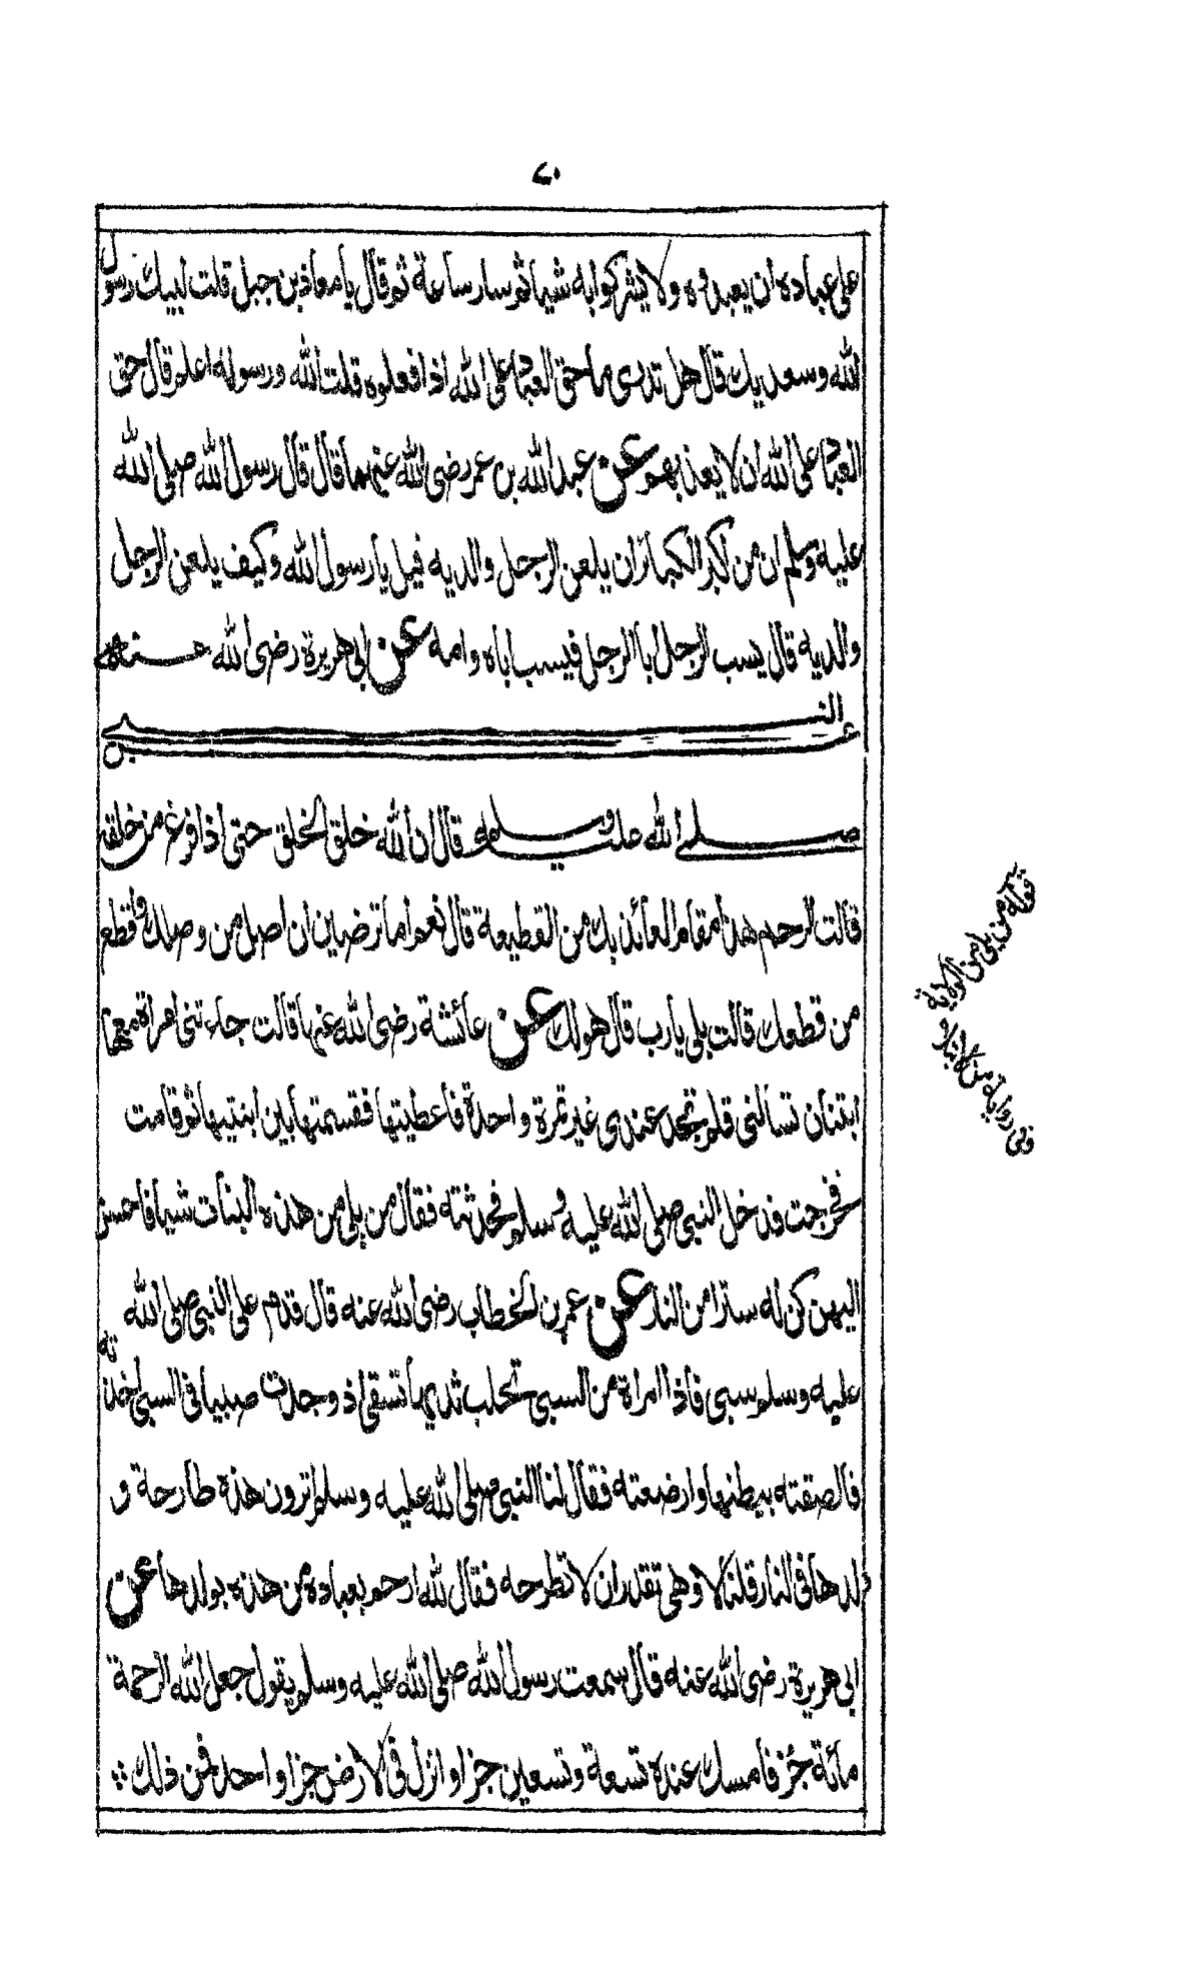 ٧٠
على عباده ان يعبدوه ولا يشركوا به شيئا ثم سار ساعة ثم قال يا معاذ بن جبل قلت لبيك رسول
الله وسعديك قال هل تدرى ما حق العباد على الله اذا فعلوه قلت الله ورسوله اعلم قال حق
العباد على الله ان لا يعذبهم عن عبد الله بن عمر رضى الله عنهما قال قال رسول الله صلى الله
عليه وسلم ان من اكبر الكبائر ان يلعن الرجل والديه قيل يا رسول الله وكيف يلعن الرجل
والديه قال يسب الرجل ابا الرجل فيسب اباه وامه عن ابى هريرة رضى الله عنه
عن النبى
صلى الله عليه وسلم قال ان الله خلق الخلق حتى اذا فرغ من خلقه
قالت الرحم هذا مقام العائذ بك من القطيعة قال نعم اما ترضين ان اصل من وصلك واقطع
من قطعك قالت بلى يارب قال هو لك عن عائشة رضى الله عنها قالت جاءتنى امراة معها
ابنتان تسالنى فلم تجد عندى غير تمرة واحدة فاعطيتها فقسمتها بين ابنتيها ثم قامت
فخرجت فدخل النبى صلى الله عليه وسلم فحدثته فقال من يلى من هذه البنات شيئا فاحسن
اليهن كن له سترا من النار عن عمر بن الخطاب رضى الله عنه قال قدم على النبى صلى الله
عليه وسلم سبى فاذا امراة من السبى تحلب ثديها تسقى اذ وجدت صبيا فى السبى اخذته
فالصقته ببطنها وارضعته فقال لنا النبى صلى الله عليه وسلم اترون هذه طارحة و
لدها فى النار قلنا لا وهى تقدر ان لا تطرحه فقال لله ارحم بعباده من هذه بولدها عن
ابى هريرة رضى الله عنه قال سمعت رسول الله صلى الله عليه وسلم يقول جعل الله الرحمة
مائة جزء فامسك عنده تسعة وتسعين جزا وانزل فى الارض جزا واحدا فمن ذلك
قوله من يلى من الولاية
وفى رواية من الابتلاء